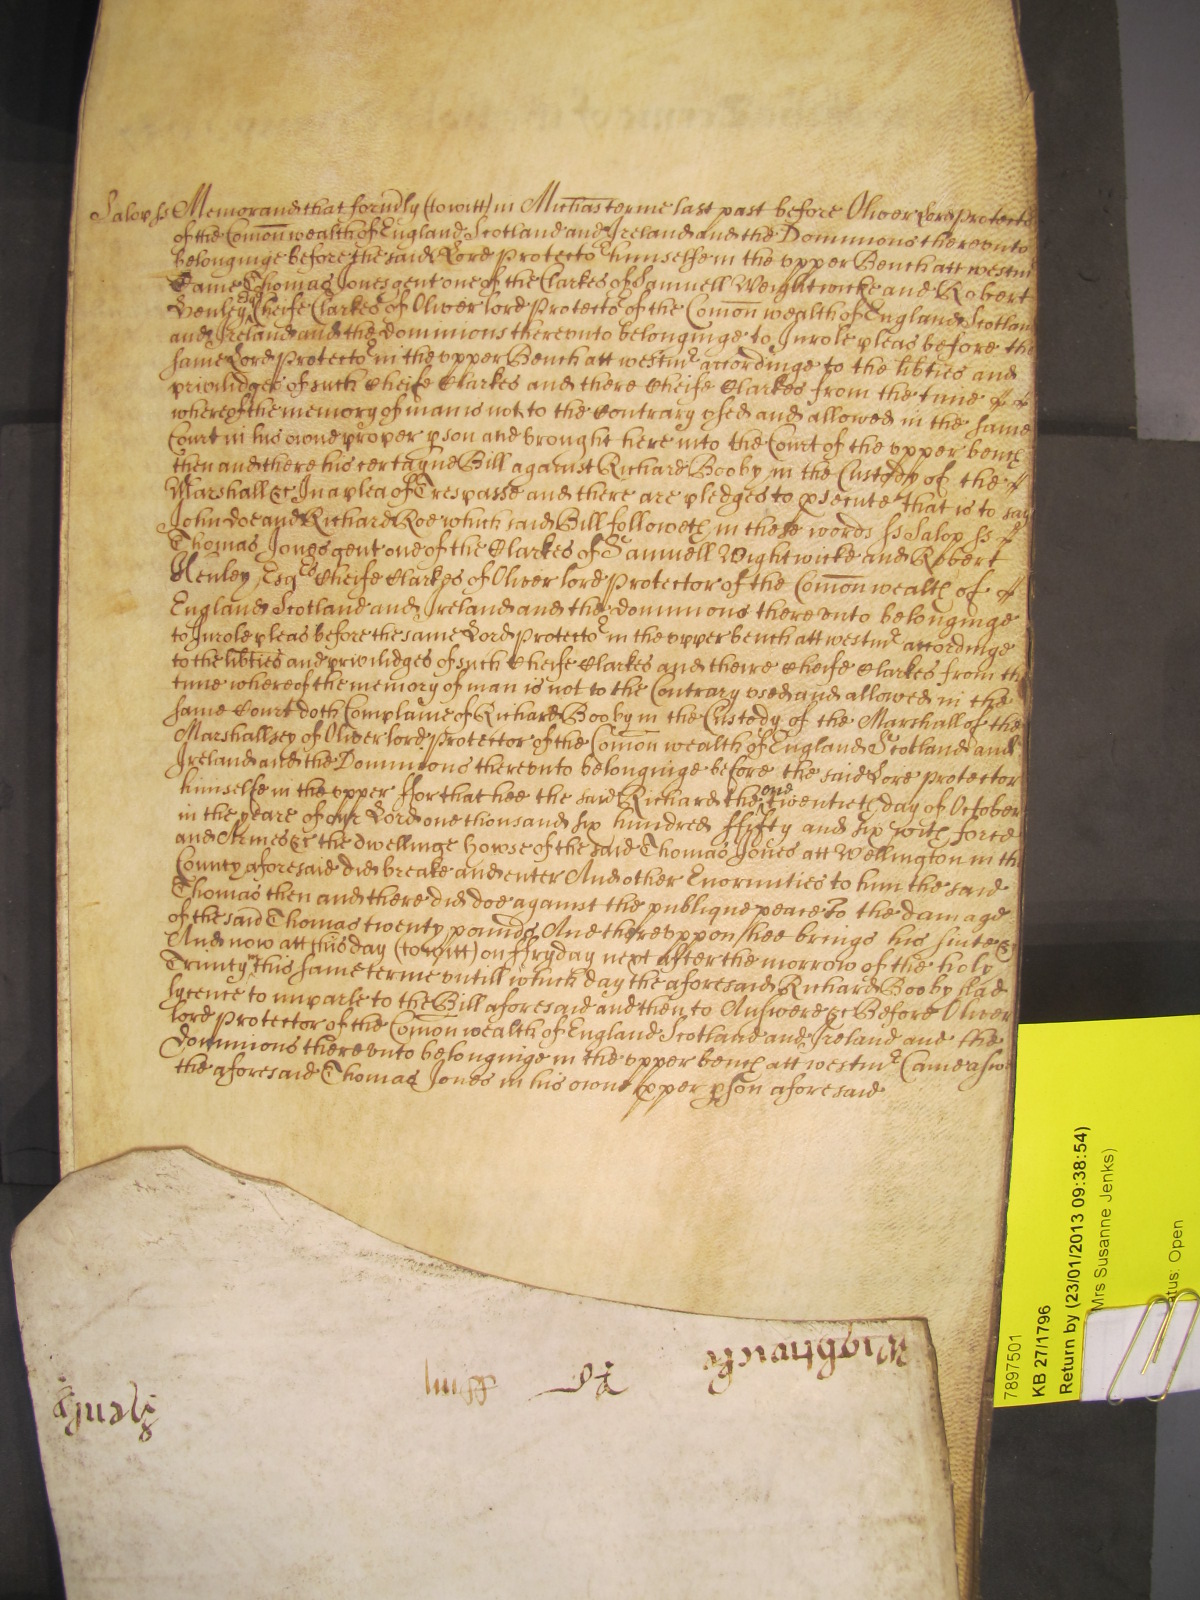 Salop ss Memorand that form̃ly (to witt) in Mich̃as terme last past before Oliver Lord Protector
of the Com̃on wealth of England Scotland and Ireland and the Dominions therevnto
belonginge before the said Lord Protector himselfe in the vpper Bench att westmr
Came Thomas Jones gent one of the Clarkes of Samuell Weightwicke and Robert
Henley Esqrs Cheife Clarkes of Oliver lord Protector of the Com̃on wealth of England Scotland
and Ireland and the Dominions therevnto belonginge to Inrole pleas before the
same Lord Protector in the vpper Bench att westmr accordinge to the lib̃ties and
priviledges of such Cheife Clarkes and there Cheife Clarkes from the time
whereof the memory of man is not to the Contrary vsed and allowed in the same
Court in his owne proper p̱son and brought here into the Court of the vpper bench
then and there his certayne Bill against Richard Booby in the Custody of the
Marshall &c In a plea of Trespasse and there are pledges to p̱secute that is to say
John Doe and Richard Roe which said Bill followeth in these words ss Salop ss
Thomas Jones gent one of the Clarkes of Samuell Wightwicke and Robert
Henley Esqrs Cheife Clarkes of Oliver lord Protector of the Com̃on wealth of
England Scotland and Ireland and the dominions there vnto belonginge
to Inrole pleas before the same Lord Protector in the vpper bench att westmr accordinge
to the lib̃ties and priviledges of such Cheife Clarkes and theire Cheife Clarkes from the
time whereof the memory of man is not to the Contrary vsed and allowed in the
same Court doth Complaine of Richard Booby in the Custody of the Marshall of the
Marshallsey of Oliver lord Protector of the Com̃on wealth of England Scotland and
Ireland and the Dominions therevnto belonginge before the said Lord Protector
himselfe in the vpper ffor that hee the said Richard the one twentieth day of October
in the yeare of our Lord one thousand six hundred ffifty and six with force
and Armes &c the dwellinge howse of the said Thomas Jones att Wellington in the
County aforesaid did breake and enter And other Enormities to him the said
Thomas then and there did doe against the publique peace To the damage
of the said Thomas twenty pounds And therevppon hee brings his suite &c
And now att this day (to witt) on ffryday next after the morrow of the holy
Trinity this same terme vntill which day the aforesaid Richard Booby had
lycence to imparle to the Bill aforesaid and then to Answere &c Before Oliver
lord Protector of the Com̃on wealth of England Scotland and Ireland and the
Dominions there vnto belonginge in the vpper bench att westmr Came aswell
the aforesaid Thomas Jones in his owne p̱per p̱son aforesaid
Wightwicke
Henley
7897501
KB 27/1796
Return by (23/01/2013 09:38:54)
Mrs Susanne Jenks)
atus: Open